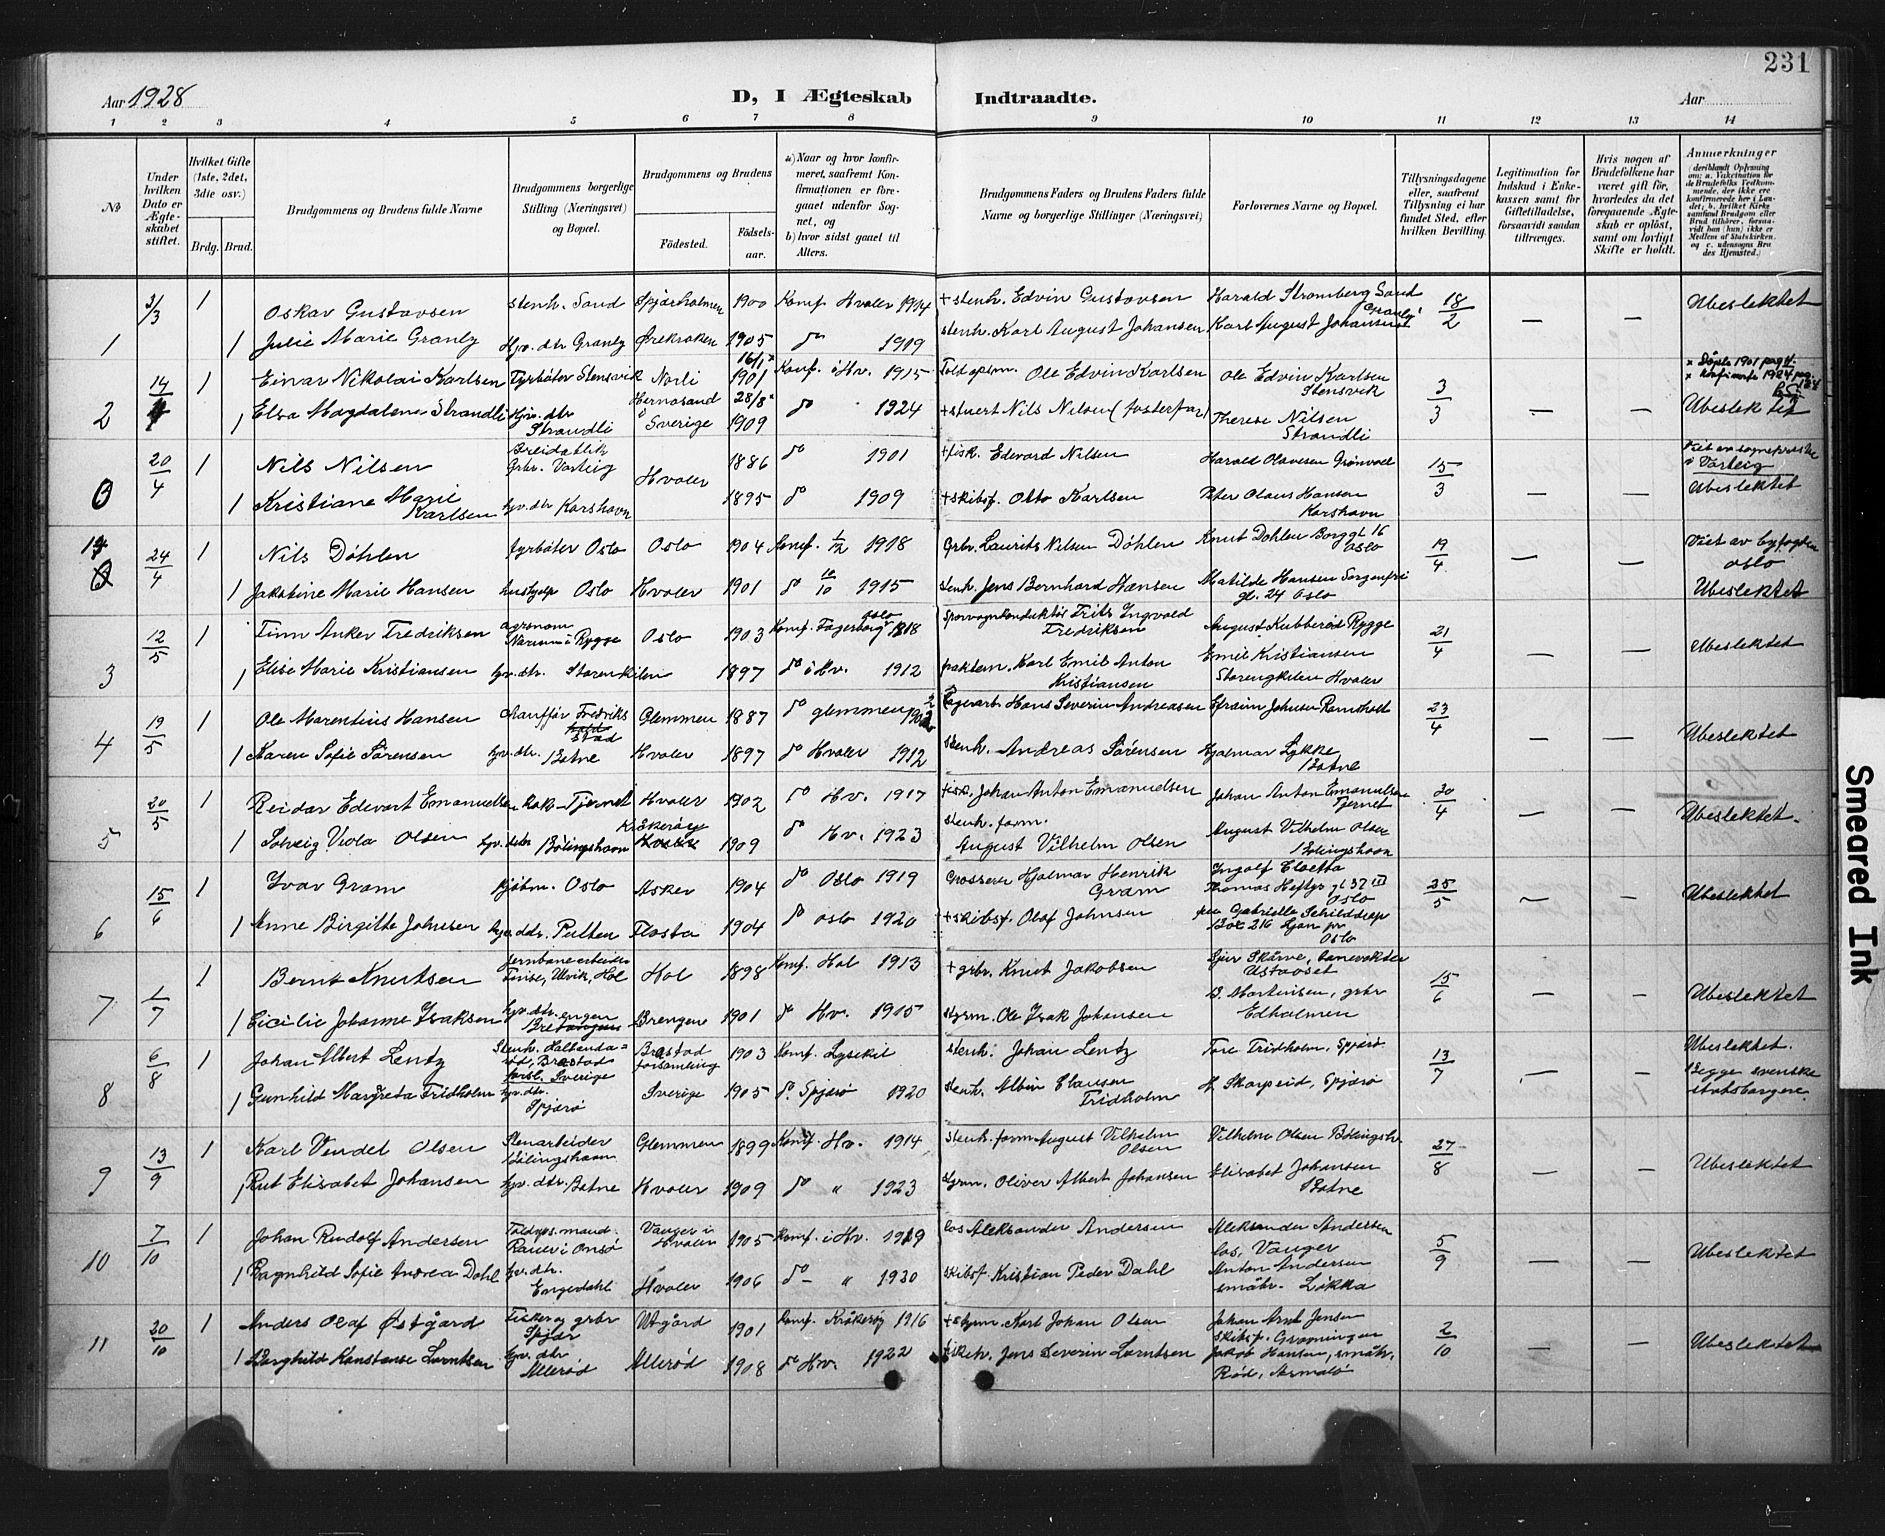 231
Aar 1928
D, I Ægteskab Indtraadte.
Aar
1 2 3 4 5 6 7 8 9 10 11 12 13 14
№
Under hvilken Dato er Ægteskabet stiftet.
Hvilket Gifte (1ste, 2det, 3die osv.)
Brdg. Brud.
Brudgommens og Brudens fulde Navne
Brudgommens borgerlige Stilling (Næringsvei) og Bopæl.
Brudgommens og Brudens
Fødested.
Fødselsaar.
a) Naar og hvor konfirmeret, saafremt Konfirmationen er foregaaet udenfor Sognet, og
b) hvor sidst gaaet til Alters.
Brudgommens Faders og Brudens Faders fulde Navne og borgerlige Stillinger (Næringsvei)
Forlovernes Navne og Bopæl.
Tillysningsdagene eller, saafremt Tillysning ei har fundet Sted, efter hvilken Bevilling.
Legitimation for Indskud i Enkekassen samt for Giftetilladelse, forsaavidt saadan tiltrænges.
Hvis nogen af Brudefolkene har været gift før, hvorledes da det foregaaende Ægteskab er opløst, samt om lovligt Skifte er holdt.
Anmerkninger
1 3/3 1 Oskar Gustavsen stenh. Sand Spjærholmen 1900 Konf. Hvaler 1914 + stenh. Edvin Gustavsen Harald Stromberg Sand 18/2 — — Ubeslektet
1 Julie Marie Granly hjv. dtr Granly Ørekroken 1905 do 1919 stenh. Karl August Johansen Karl August Johansen Granly
2 14/4 1 Einar Nikolai Karlsen Fyrbøter Stensvik Norli 16/1 1901 Konf. i Hv. 1915 Toldopsm. Ole Edvin Karlsen Ole Edvin Karlsen Stensvik 3/3 — — Ubeslektet
1 Elsa Magdalena Strandli hjv. dtr Strandli Hernosand Sverige 28/8 1909 do 1924 + stuert Nils Nilsen (fosterfar) Therese Nilsen Strandli
20/4 1 Nils Nilsen Breidablik Grbr. Varteig Hvaler 1886 do 1901 + fisk. Edvard Nilsen Harald Olavesen Grønvold 15/3 — — Viet av sogneprest i Varteig
1 Kristiane Marie Karlsen hjv. dtr Korshavn 1895 do 1909 + skibsf. Otto Karlsen Peter Olaus Hansen Korshavn Ubeslektet
24/4 1 Nils Döhlen fyrbøter Oslo Oslo 1904 Konf. 1/12 1918 Grbr. Laurits Nilsen Döhlen Knut Dohlen Borggt. 16 Oslo 19/4 — — Viet av byfogden Oslo
1 Jakobine Marie Hansen hushjelp Oslo Hvaler 1901 do 10/10 1915 Stenh. Jens Bernhard Hansen Matilde Hansen Sorgenfri gt. 24 Oslo Ubeslektet
3 12/5 1 Finn Anker Fredriksen agronom Rygge Oslo 1903 Konf. Fagerborg Oslo 1918 Sporvognkonduktør Frits Ingvald Fredriksen August Kubberød Rygge 21/4 — — Ubeslektet
1 Elise Marie Kristiansen hjv. dtr. Storenkilen 1897 do i Hv. 1912 Karl Emil Anton Kristiansen Emil Kristiansen Storengkilen Hvaler
4 19/5 1 Ole Marentius Hansen chauffør Fredriksstad Glemmen 1887 do glemmen Hans Severin Andreasen Efraim Johnsen Ramsholt 23/4 — — Ubeslektet
1 Karen Sofie Sørensen hjv. dtr. Botne Hvaler 1897 do Hvaler 1912 Stenh. Andreas Sørensen Hjalmar Lykke Botne
5 20/5 1 Reidar Edevart Emanuelsen Kok – Tjernet Hvaler 1902 do Hv. 1917 fisk. Johan Anton Emanuelsen Johan Anton Emanuelsen Tjernet 30/4 — — Ubeslektet.
1 Solveig Viola Olsen hjv. dtr Bölingshavn Kråkerøy 1909 do Hv. 1923 stenh. form. August Vilhelm Olsen August Vilhelm Olsen Bölingshavn
6 15/6 1 Ivar Gram kjöbm. Oslo Asker 1904 do Oslo 1919 Grosserer Hjalmar Henrik Gram Ingolf Eloetta Thomas Heftys gt 37 III Oslo 25/5 — — Ubeslektet
1 Anne Birgitte Johnsen hjv. dtr. Pulten Flosta 1904 do Oslo 1920 + skibsf. Olaf Johnsen Gabrielle Schilddrop Box 216 Ljan pr Oslo
7 1/7 1 Bernt Knutsen Jernbanearbeider Finse, Ulvik, Hol Hol 1898 Konf. Hol 1913 + grbr. Knut Jakobsen Sjur Skårve, banevokter Ustaoset 15/6 — — Ubeslektet
1 Cicilie Johanne Isaksen hjv. dtr. Brengen 1901 do Hv. 1915 styrm. Ole Isak Johansen B. Martinsen, grbr Edholmen
8 6/8 1 Johan Albert Lentz Stenh. Hallandaröd, Brastad försl. Sverige Brastad forsamling 1903 Konf. Lysekil stenh. Johan Lentz Tore Fridholm, Spjærø 13/7 — — Ubeslektet.
1 Gunhild Margreta Fridholm hjv. dtr. Spjærø Sverige 1905 do Spjærø 1920 stenh. Albin Clausen Fridholm H. Skarpeid, Spjærø Begge svenske statsborgere.
9 13/9 1 Karl Vendel Olsen Stenarbeider Bölingshavn Glemmen 1899 Konf. Hv. 1914 stenh. form August Vilhelm Olsen Vilhelm Olsen Bölingsh. 27/8 — — Ubeslektet
1 Rut Elisabet Johansen hjv. dtr. Botne Hvaler 1909 do " 1923 styrm. Oliver Albert Johansen Elisabet Johansen Botne
10 7/10 1 Johan Rudolf Andersen Rauer i Onsø Vauger i Hvaler 1905 Konf. i Hv. 1919 los Aleksander Andersen Aleksander Andersen los, Vauger 5/9 — — Ubeslektet
1 Ragnhild Sofie Andrea Dahl hjv. dtr. Engedahl Hvaler 1906 do – " 1930 skibsf. Kristian Peder Dahl Anton Andersen småbr. Løkka
11 20/10 1 Anders Olaf Østgård Fisker og grbr Spjær Utgård 1901 Konf. Kråkerøy 1916 + styrm. Karl Johan Olsen Johan Arnt Jensen skibsf. Gravningen 2/10 — — Ubeslektet
1 Borghild Konstanse Lorntsen hjv. dtr Allerød Allerød 1908 do Hv. 1922 Jens Severin Lorntsen Jakob Hansen, småbr. Rød, Asmalø
Smeared Ink